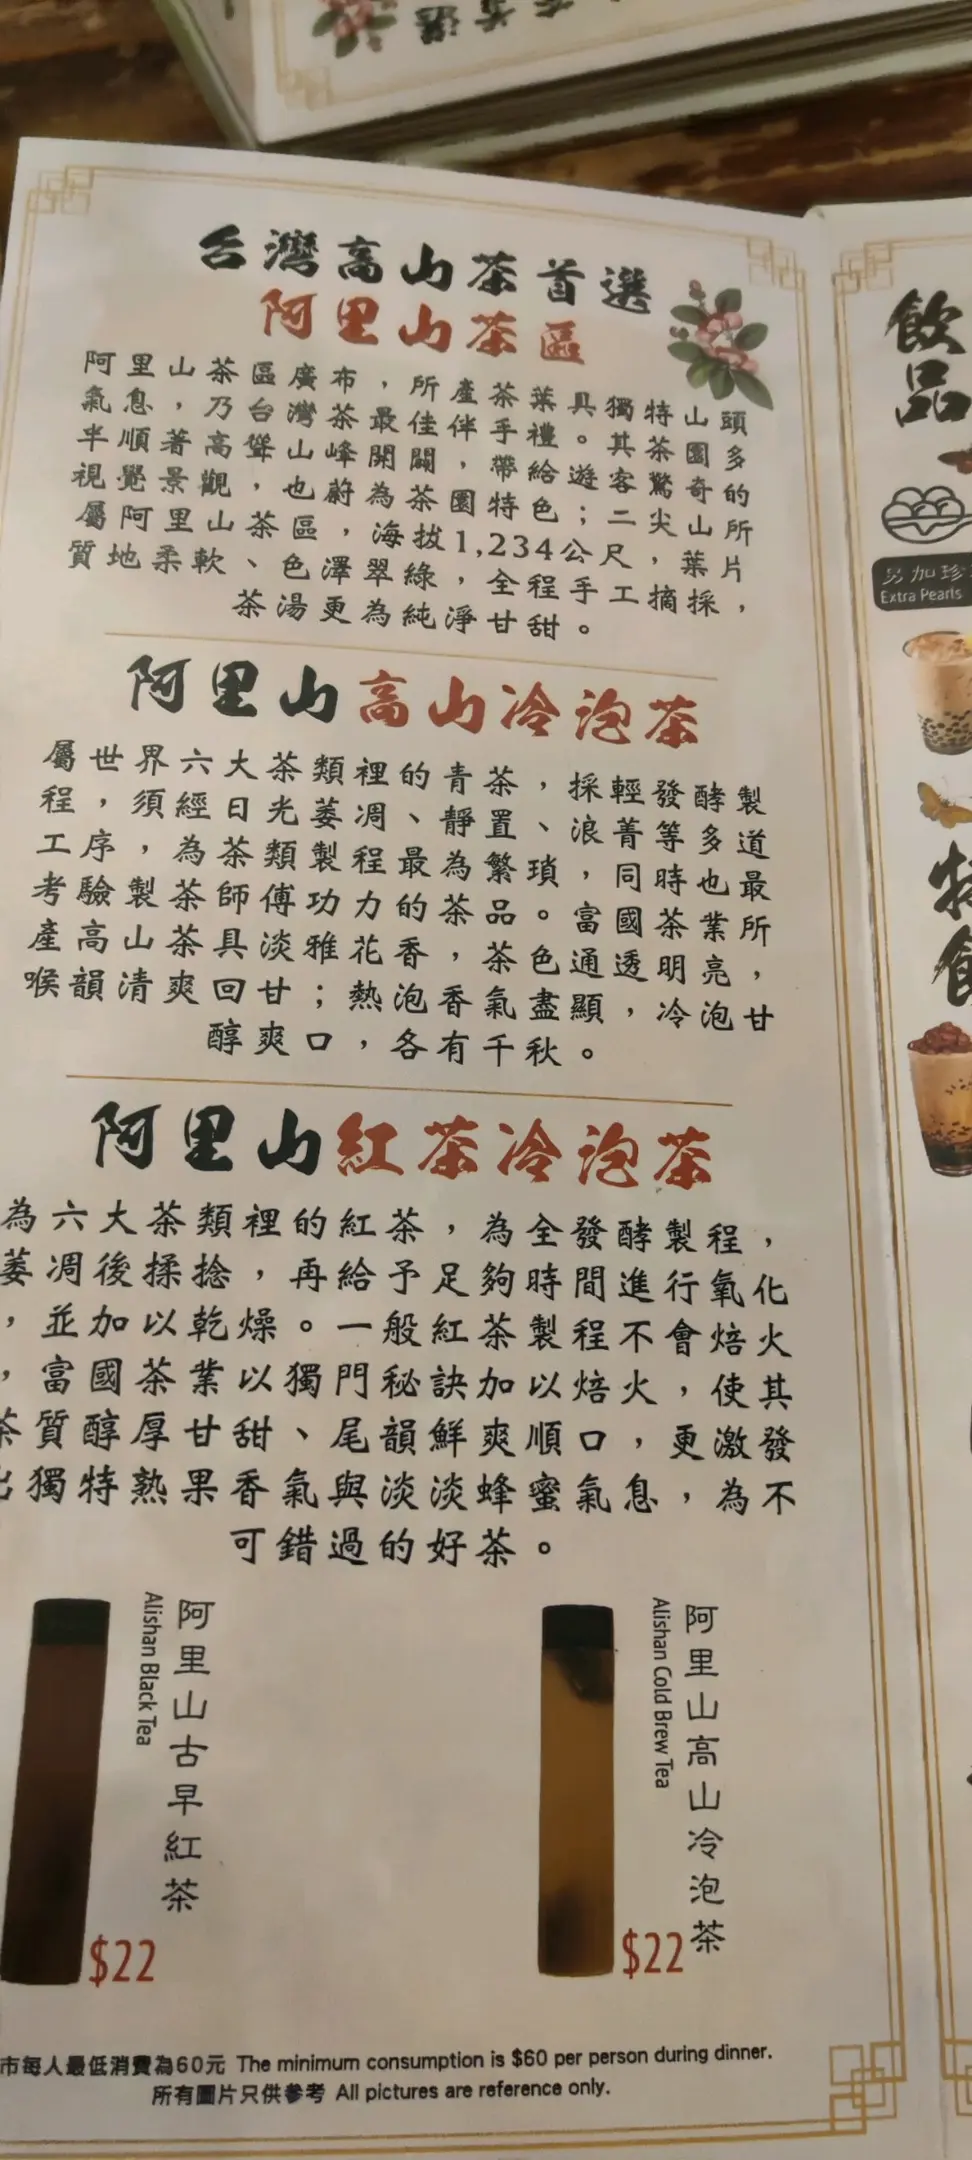 台灣高山茶首選
阿里山茶區
阿里山茶區廣布，所產茶葉具獨特山頭
氣息，乃台灣茶最佳伴手禮。其茶園多
半順著高聳山峰開闢，帶給遊客驚奇的
視覺景觀，也蔚為茶園特色；二尖山所
屬阿里山茶區，海拔1,234公尺，葉片
質地柔軟、色澤翠綠，全程手工摘採，
茶湯更為純淨甘甜。
阿里山高山冷泡茶
屬世界六大茶類裡的青茶，採輕發酵製
程，須經日光萎凋、靜置、浪菁等多道
工序，為茶類製程最為繁瑣，同時也最
考驗製茶師傅功力的茶品。富國茶業所
產高山茶具淡雅花香，茶色通透明亮，
喉韻清爽回甘；熱泡香氣盡顯，冷泡甘
醇爽口，各有千秋。
阿里山紅茶冷泡茶
為六大茶類裡的紅茶，為全發酵製程，
萎凋後揉捻，再給予足夠時間進行氧化
，並加以乾燥。一般紅茶製程不會焙火
，富國茶業以獨門秘訣加以焙火，使其
茶質醇厚甘甜、尾韻鮮爽順口，更激發
出獨特熟果香氣與淡淡蜂蜜氣息，為不
可錯過的好茶。
阿里山古早紅茶
Alishan Black Tea
$22
阿里山高山冷泡茶
Alishan Cold Brew Tea
$22
市每人最低消費為60元 The minimum consumption is $60 per person during dinner.
所有圖片只供參考 All pictures are reference only.
飲品
另加珍
Extra Pearls